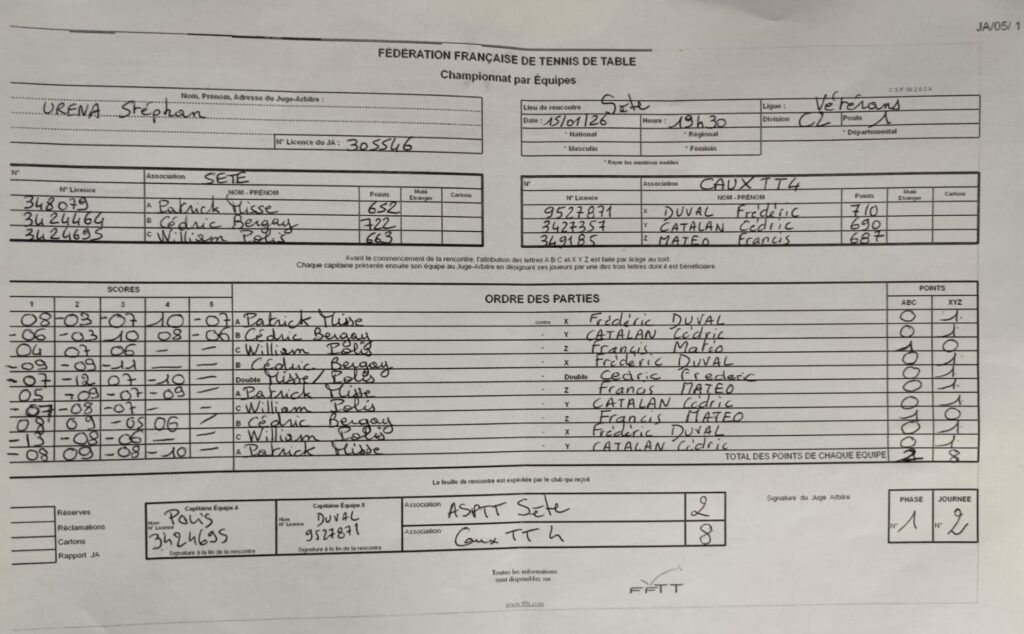 JA/05/ 1
FÉDÉRATION FRANÇAISE DE TENNIS DE TABLE
Championnat par Équipes
Nom, Prénom, Adresse du Juge-Arbitre :
URENA Stéphan
N° Licence du JA : 305546
Lieu de rencontre Sete Ligue : Vétérans
Date : 15/01/26 Heure : 19h30 Division C2 Poule 1
* National * Régional * Départemental
* Masculin * Féminin
* Rayer les mentions inutiles
N° Association SETE
N° Licence NOM - PRÉNOM Points Muté Etranger Cartons
348079 A Patrick Misse 652
3424464 B Cédric Bergay 722
3424695 C William Polis 663
N° Association CAUX TT 4
N° Licence NOM - PRÉNOM Points Muté Etranger Cartons
9527871 X DUVAL Frédéric 710
3427357 Y CATALAN Cédric 690
349185 Z MATEO Francis 687
Avant le commencement de la rencontre, l'attribution des lettres A B C et X Y Z est faite par tirage au sort.
Chaque capitaine présente ensuite son équipe au Juge-Arbitre en désignant ses joueurs par une des trois lettres dont il est bénéficiaire
SCORES ORDRE DES PARTIES POINTS
1 2 3 4 5 ABC XYZ
08 -03 -07 10 -07 A Patrick Misse contre X Frédéric DUVAL 0 1
-06 -03 10 08 -06 B Cédric Bergay - Y CATALAN Cédric 0 1
04 07 06 — — C William Polis - Z Francis Mateo 1 0
-09 -09 -11 — — B Cédric Bergay - X Frédéric DUVAL 0 1
-07 -12 07 -10 — Double Misse/Polis - Double Cedric Frederic 0 1
05 -09 -07 -09 — A Patrick Misse - Z Francis MATEO 0 1
-07 -08 -07 — — C William Polis - Y CATALAN Cédric 0 1
08 09 -05 06 — B Cédric Bergay - Z Francis MATEO 1 0
-13 -08 -06 — — C William Polis - X Frédéric DUVAL 0 1
-08 09 -08 -10 — A Patrick Misse - Y CATALAN Cédric 0 1
TOTAL DES POINTS DE CHAQUE EQUIPE 2 8
La feuille de rencontre est expédiée par le club qui reçoit
Réserves
Réclamations
Cartons
Rapport JA
Capitaine Équipe A
Nom POLIS
N° Licence 3424695
Signature à la fin de la rencontre
Capitaine Équipe X
Nom DUVAL
N° Licence 9527871
Signature à la fin de la rencontre
Association ASPTT Sete 2
Association Caux TT 4 8
Signature du Juge Arbitre
PHASE JOURNEE
N° 1 N° 2
Toutes les informations
sont disponibles sur
www.fftt.com
FFTT